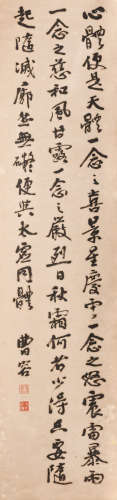 心體便是天體一念之喜景星慶雲一念之怒震雷暴雨
一念之慈和風甘露一念之嚴烈日秋霜何者少得只要隨
起隨滅廓然無礙便與太虛同體
曹容